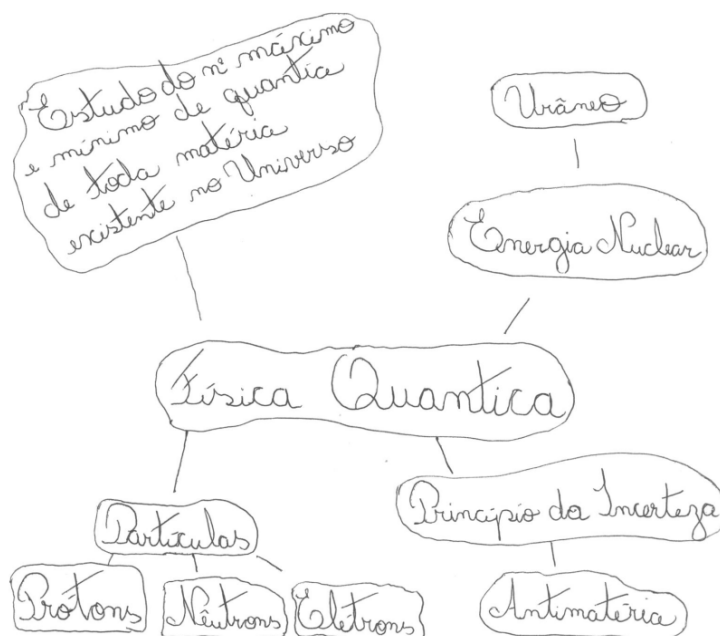 Estudo do nº máximo
e mínimo de quantia
de toda matéria
existente no Universo
Urâneo
Energia Nuclear
Física Quantica
Partículas
Princípio da Incerteza
Prótons
Nêutrons
Elétrons
Antimatéria